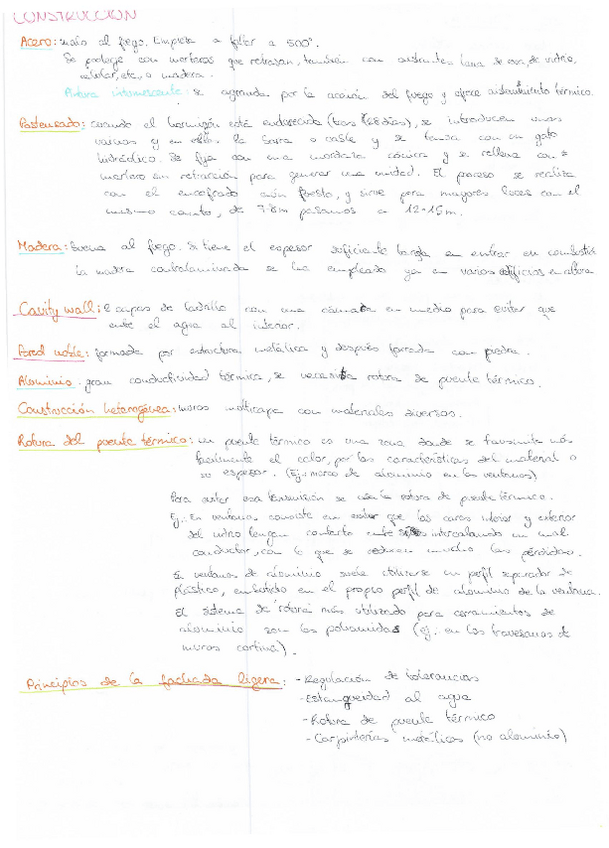 CONSTRUCCIÓN
Acero: malo al fuego. Empieza a fallar a 500°.
Se protege con morteros que retrasan, también con aislantes: lana de roca, de vidrio,
celular, etc, o madera.
Pintura intumescente: se agranda por la acción del fuego y ofrece aislamiento térmico.
Postesado: cuando el hormigón está endurecido (tras 28 días), se introducen unas
vainas y en ellas la barra o cable y se tensa con un gato
hidráulico. Se fija con una mordaza cónica y se rellena con
mortero sin retracción para generar una unidad. El proceso se realiza
con el encofrado aún puesto, y sirve para mayores luces con el
mismo canto, de 7-8m pasamos a 12-15m.
Madera: buena al fuego. Si tiene el espesor suficiente tarda en entrar en combustión
la madera contralaminada se ha empleado ya en varios edificios en altura
Cavity wall: 2 capas de ladrillo con una cámara en medio para evitar que
entre el agua al interior.
Pared noble: formada por estructura metálica y después forrada con piedra.
Aluminio: gran conductividad térmica, se necesita rotura de puente térmico.
Construcción heterogénea: muros multicapa con materiales diversos.
Rotura del puente térmico: un puente térmico es una zona donde se transmite más
fácilmente el calor, por las características del material o
su espesor. (Ej: marco de aluminio en las ventanas)
Para evitar esa transmisión se usa la rotura de puente térmico.
Ej: En ventanas consiste en evitar que las caras interior y exterior
del vidrio tengan contacto entre sí intercalando un mal
conductor, con lo que se reducen mucho las pérdidas.
En ventanas de aluminio suele utilizarse un perfil separador de
plástico, embutido en el propio perfil de aluminio de la ventana.
El sistema de rotura más utilizado para cerramientos de
aluminio son las poliamidas (ej: en los travesaños de
muros cortina).
Principios de la fachada ligera: - Regulación de tolerancias
- Estanqueidad al agua
- Rotura de puente térmico
- Carpinterías metálicas (no aluminio)